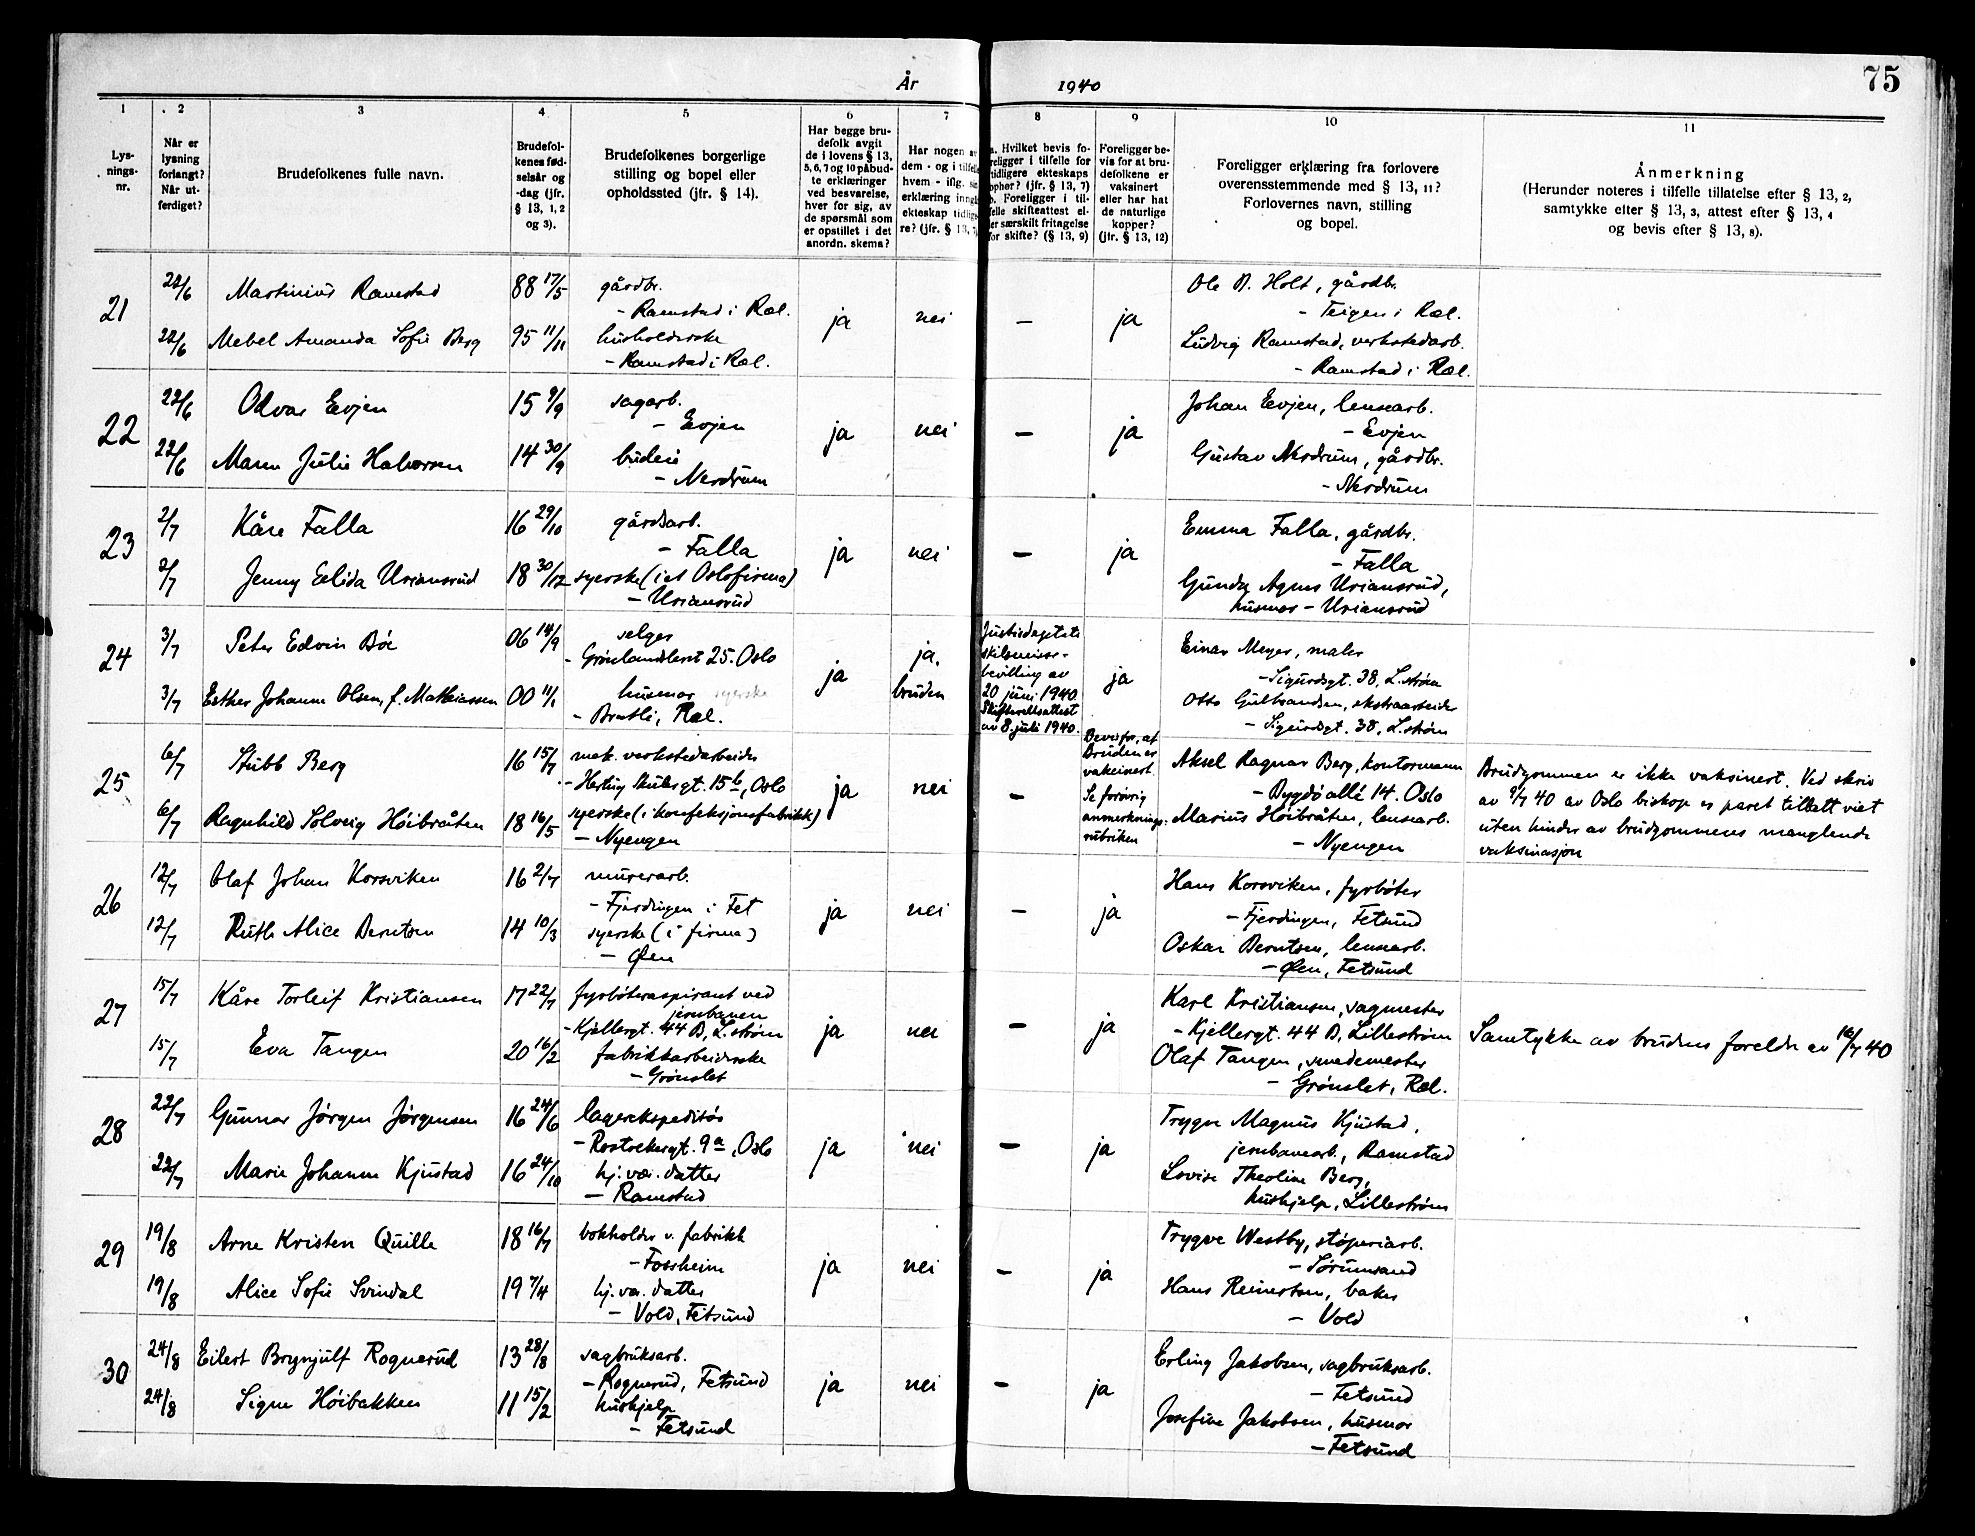 År 1940
75
1
2
3
4
5
6
7
8
9
10
11
Lys-
nings-
nr.
Når er
lysning
forlangt?
Når ut-
ferdiget?
Brudefolkenes fulle navn.
Brudefol-
kenes fød-
selsår og
-dag (jfr.
§ 13, 1, 2
og 3).
Brudefolkenes borgerlige
stilling og bopel eller
opholdssted (jfr. § 14).
Har begge bru-
defolk avgit
de i lovens § 13,
5, 6, 7 og 10 påbud-
te erklæringer
ved besvarelse,
hver for sig, av
de spørsmål som
er opstillet i det
anordn. skema?
Har nogen a
dem - og i tilfelle
hvem - iflg. si
erklæring inng
ekteskap tidlig
re? (jfr. § 13, 7
a. Hvilket bevis fo-
religger i tilfelle for
tidligere ekteskaps
ophør? (jfr. § 13, 7)
b. Foreligger i til-
felle skifteattest el-
ler særskilt fritagelse
for skifte? (§ 13, 9)
Foreligger be-
vis for at bru-
defolkene er
vaksinert
eller har hat
de naturlige
kopper?
(jfr. § 13, 12)
Foreligger erklæring fra forlovere
overensstemmende med § 13, 11?
Forlovernes navn, stilling
og bopel.
Anmerkning
(Herunder noteres i tilfelle tillatelse efter § 13, 2,
samtykke efter § 13, 3, attest efter § 13, 4
og bevis efter § 13, 8).
21
22/6 Martinius Ramstad 88 17/5 gårdbr.
- Ramstad i Ræl.
22/6 Mebel Amanda Sofie Berg 95 11/11 husholderske
- Ramstad i Ræl.
ja nei — ja
Ole D. Holt, gårdbr.
- Teigen i Ræl.
Ludvig Ramstad, verkstedarb.
- Ramstad i Ræl.
22
22/6 Odvar Evjen 15 9/9 sagarb.
- Evjen
22/6 Maren Julie Halvorsen 14 30/9 budeie
- Nerdrum
ja nei — ja
Johan Evjen, lensearb.
- Evjen
Gustav Nerdrum, gårdbr.
- Nerdrum
23
2/7 Kåre Falla 16 29/10 gårdsarb.
- Falla
2/7 Jenny Elida Uriansrud 18 30/12 syerske (i et Oslofirma)
- Uriansrud
ja nei — ja
Emma Falla, gårdbr.
- Falla
Gunda Agnes Uriansrud,
husmor - Uriansrud
24
3/7 Peter Edvin Böe 06 14/9 selger
- Grönlandsleret 25. Oslo
3/7 Esther Johanne Olsen, f. Mathiassen 00 11/1 husmor syerske
- Bratli, Ræl.
ja
ja,
bruden
Justisdeptets
skilsmisse-
bevilling av
20 juni 1940
Skifterettsattest
av 8. juli 1940.
ja
Einar Meyer, maler
- Sigurdsgt. 38, L.ström
Otto Gulbrandsen, ekstraarbeider
- Sigurdsgt. 38, L.ström
25
6/7 Stubb Berg 16 15/7 mek. verkstedarbeider
- Hertug Skulesgt. 15 b, Oslo
6/7 Ragnhild Solveig Höibråten 18 16/5 syerske (i konfeksjonsfabrikk)
- Nyengen
ja nei —
Bevis for, at
Bruden er
vaksinert
Se forövrig
anmerknings-
rubriken
Aksel Ragnar Berg, kontormann
- Bygdö allé 14. Oslo
Marius Höibråten, lensearb.
- Nyengen
Brudgommen er ikke vaksinert. Ved skriv
av 9/7 40 av Oslo biskop er paret tillatt viet
uten hinder av brudgommens manglende
vaksinasjon
26
12/7 Olaf Johan Korsviken 16 2/7 murerarb.
- Fjerdingen i Fet
12/7 Ruth Alice Berntsen 14 10/3 syerske (i firma)
- Øen
ja nei — ja
Hans Korsviken, fyrböter
- Fjerdingen, Fetsund
Oskar Berntsen, lensearb.
- Øen, Fetsund
27
15/7 Kåre Torleif Kristiansen 17 22/7 fyrböteraspirant ved
jernbanen
- Kjellergt. 44 B, L.ström
15/7 Eva Tangen 20 16/2 fabrikkarbeiderske
- Grönslet
ja nei — ja
Karl Kristiansen, sagmester
- Kjellergt. 44 B, Lilleström
Olaf Tangen, smedemester
- Grönslet, Ræl.
Samtykke av brudens foreldre av 16/7 40
28
22/7 Gunnar Jörgen Jörgensen 16 24/6 lagerekspeditör
- Rostockergt. 9 a, Oslo
22/7 Marie Johanne Kjustad 16 24/10 hj.vær. datter
- Ramstad
ja nei — ja
Trygve Magnus Kjustad,
jernbanearb., Ramstad
Lovise Theoline Berg,
hushjelp, Lilleström
29
19/8 Arne Kristen Quille 18 16/7 bokholder v. fabrikk
- Fossheim
19/8 Alice Sofie Svindal 19 7/4 hj.vær. datter
- Vold, Fetsund
ja nei — ja
Trygve Westby, stöperiarb.
- Sörumsand
Hans Reinertsen, baker
- Vold
30
24/8 Eilert Brynjulf Rognerud 13 28/8 sagbruksarb.
- Rognerud, Fetsund
24/8 Signe Höibakken 11 15/2 hushjelp
- Fetsund
ja nei — ja
Erling Jakobsen, sagbruksarb.
- Fetsund
Josefine Jakobsen, husmor
- Fetsund